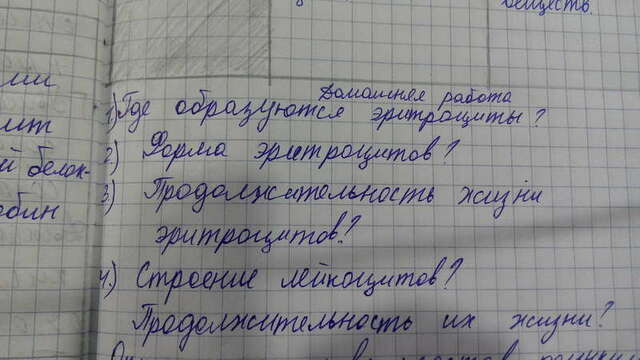 веществ.
Домашняя работа
1) Где образуются эритроциты?
2) Форма эритроцитов?
3) Продолжительность жизни
эритроцитов?
4.) Строение лейкоцитов?
Продолжительность их жизни?
й белок-